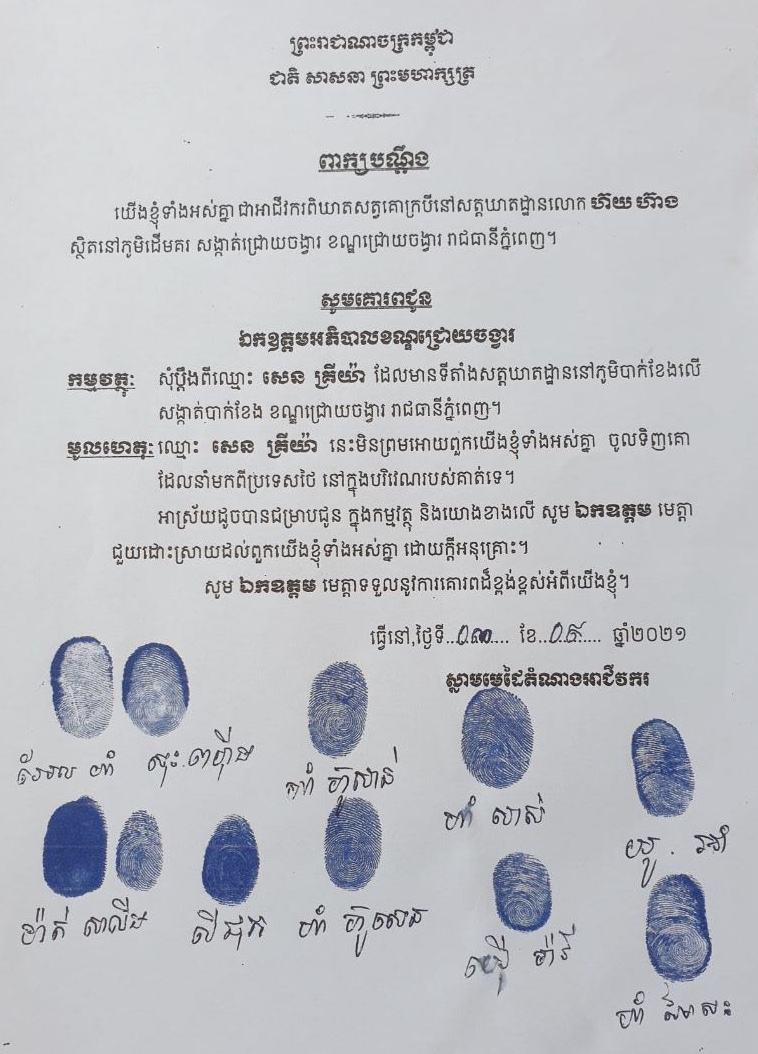 ព្រះរាជាណាចក្រកម្ពុជា
ជាតិ សាសនា ព្រះមហាក្សត្រ
ពាក្យបណ្ដឹង
យើងខ្ញុំទាំងអស់គ្នាជាអាជីវករពិឃាតសត្វគោក្របីនៅសត្តឃាតដ្ឋានលោក ហ៊យ ហ៊ាង
ស្ថិតនៅភូមិដើមគរ សង្កាត់ជ្រោយចង្វារ ខណ្ឌជ្រោយចង្វារ រាជធានីភ្នំពេញ។
សូមគោរពជូន
ឯកឧត្តមអភិបាលខណ្ឌជ្រោយចង្វារ
កម្មវត្ថុ: សុំប្ដឹងពីឈ្មោះ សេន គ្រីយ៉ា ដែលមានទីតាំងសត្តឃាតដ្ឋាននៅភូមិបាក់ខែងលើ
សង្កាត់បាក់ខែង ខណ្ឌជ្រោយចង្វារ រាជធានីភ្នំពេញ។
មូលហេតុ: ឈ្មោះ សេន គ្រីយ៉ា នេះមិនព្រមអោយពួកយើងខ្ញុំទាំងអស់គ្នា ចូលទិញគោ
ដែលនាំមកពីប្រទេសថៃ នៅក្នុងបរិវេណរបស់គាត់ទេ។
អាស្រ័យដូចបានជម្រាបជូន ក្នុងកម្មវត្ថុ និងយោងខាងលើ សូម ឯកឧត្តម មេត្តា
ជួយដោះស្រាយដល់ពួកយើងខ្ញុំទាំងអស់គ្នា ដោយក្ដីអនុគ្រោះ។
សូម ឯកឧត្តម មេត្តាទទួលនូវការគោរពដ៏ខ្ពង់ខ្ពស់អំពីយើងខ្ញុំ។
ធ្វើនៅ,ថ្ងៃទី........ ខែ........ ឆ្នាំ២០២១
ស្លាមមេដៃតំណាងអាជីវករ
ហាំ
ហាំ
ហាំ សាស់
ម៉ាត់ សាលីម
ហាំ
ម៉ារី
ហាំ